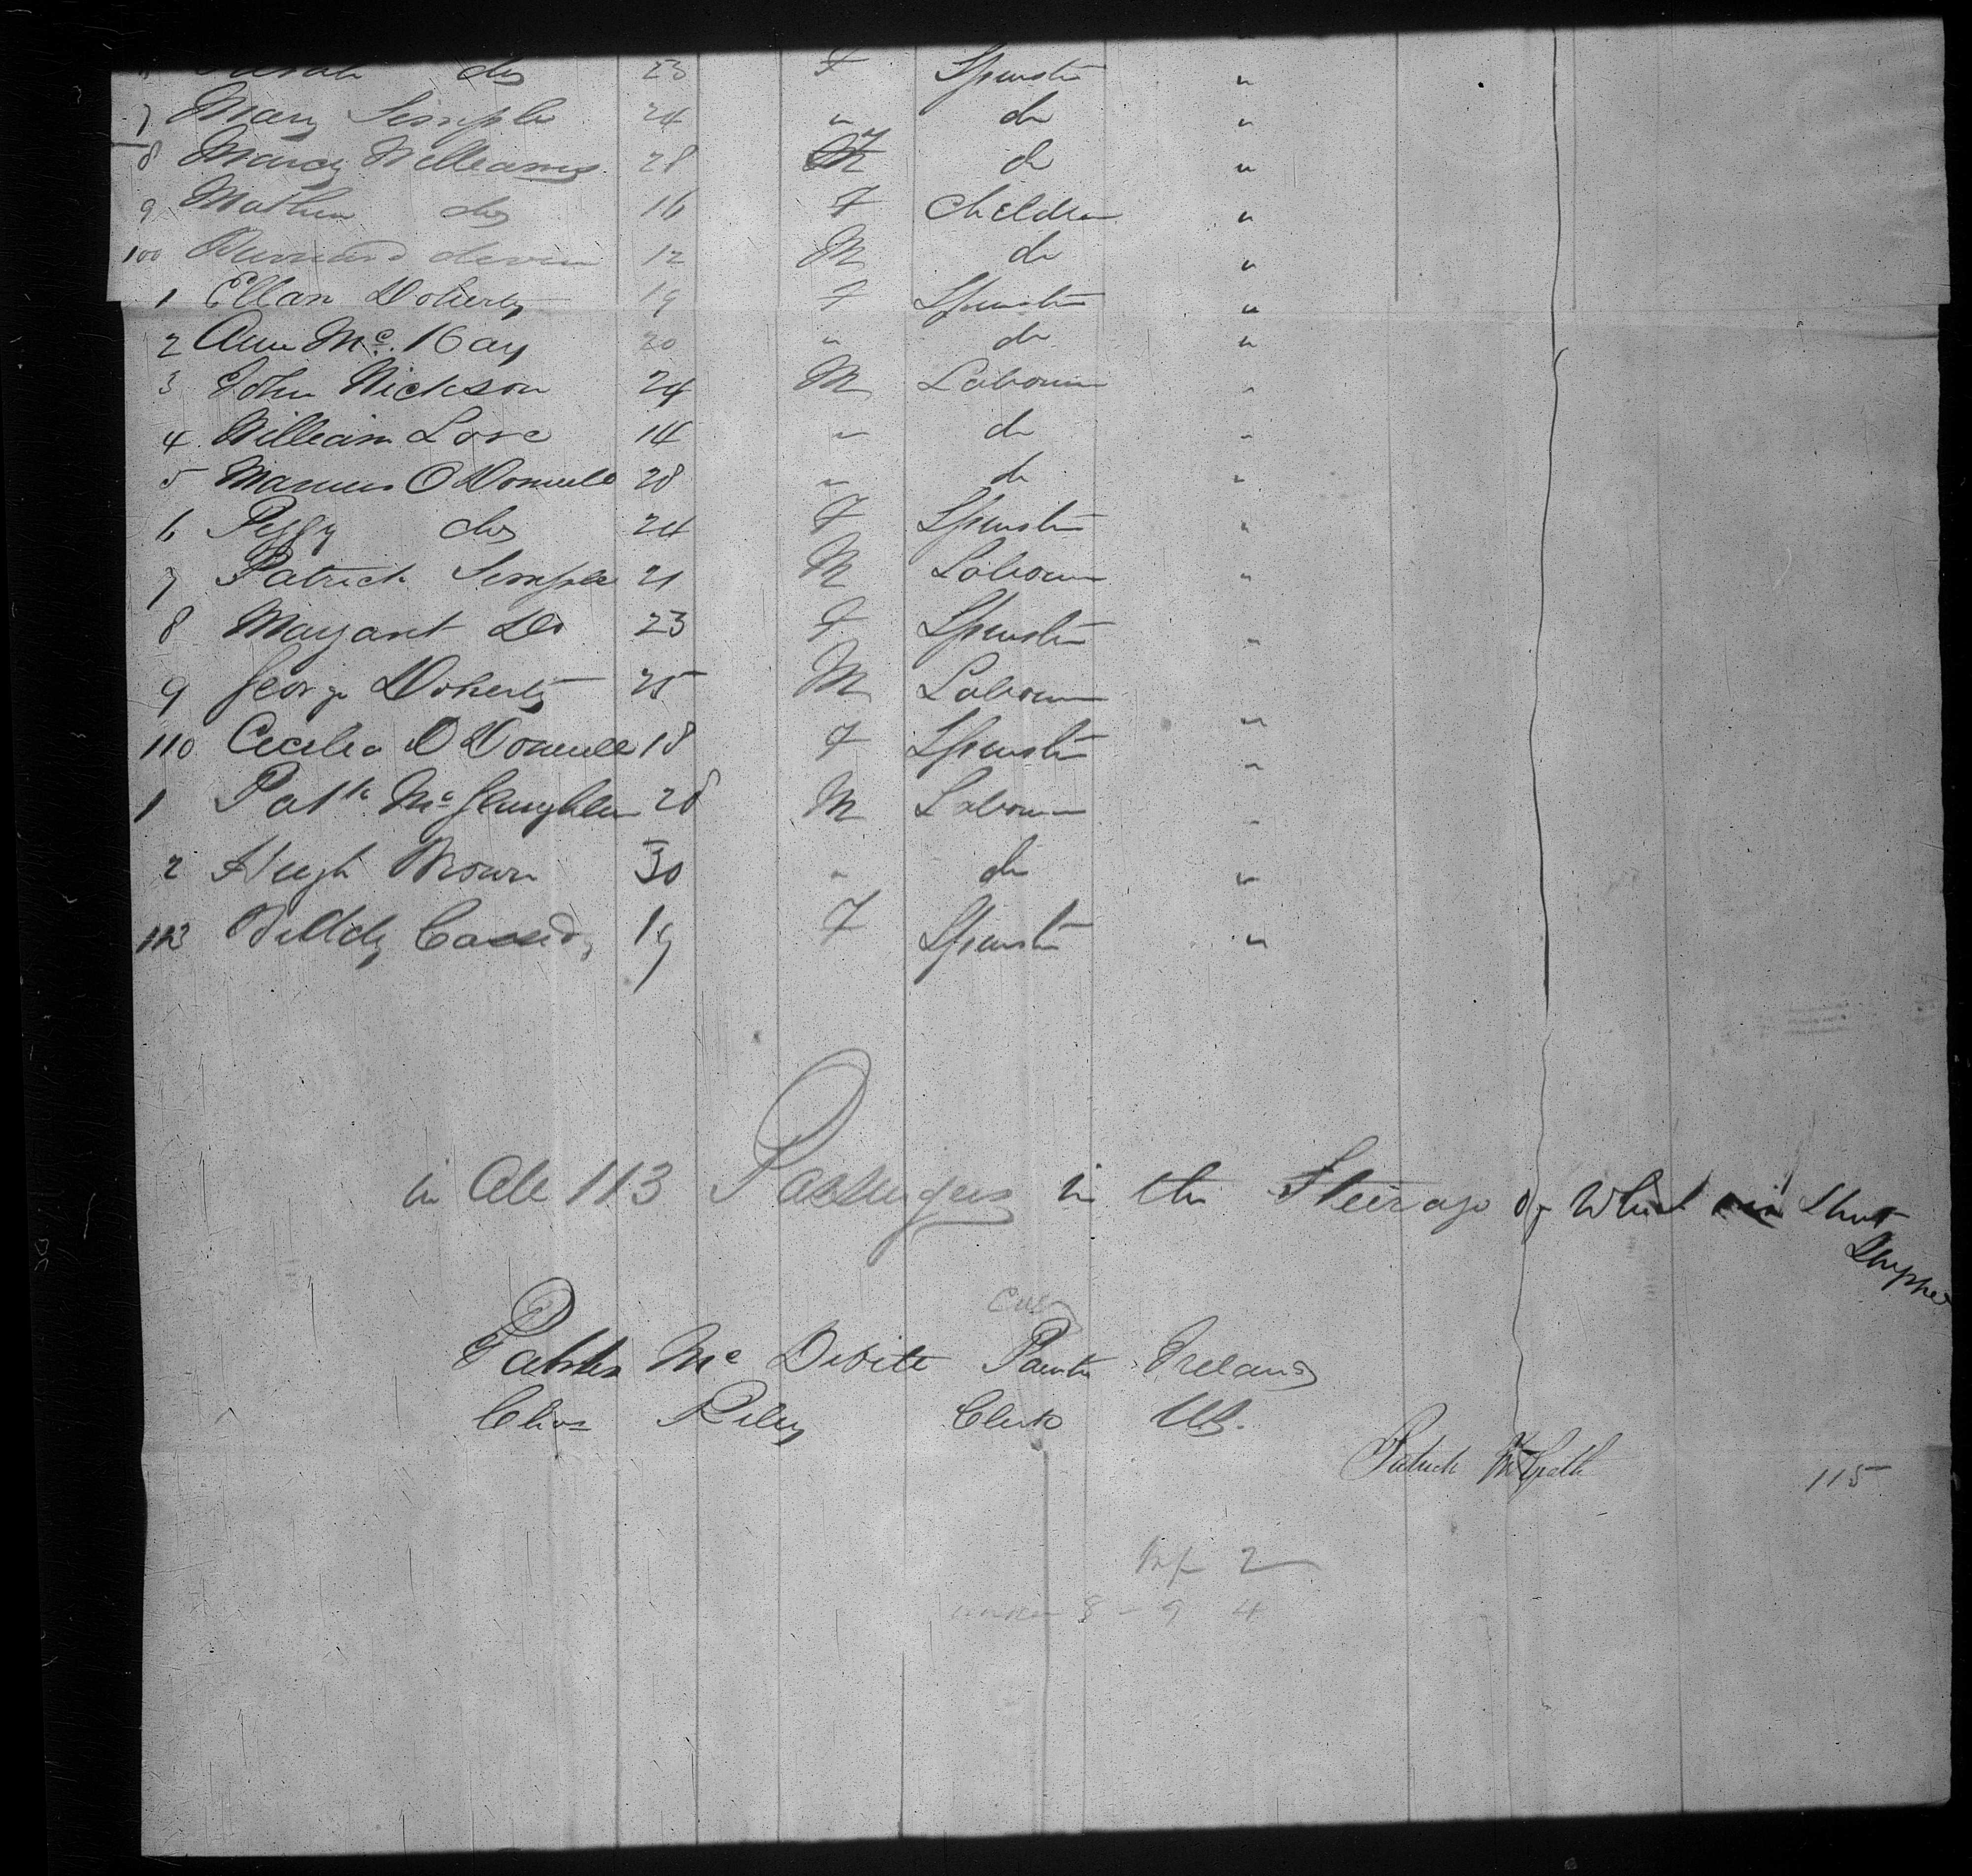 Sarah do 23 F Spinster "
7 Mary Semple 24 " do "
8 Marcy Williams 28 F do "
9 Mathew do 16 F Children "
100 Bernard 12 M do "
1 Ellan Doherty 19 F Spinster "
2 Ann Mc Kay 20 " do "
3 John Nickson 24 M Labourer "
4 William Love 14 " do "
5 Manus O Donnell 28 " do "
6 Peggy do 24 F Spinster "
7 Patrick Semple 21 M Labourer "
8 Margaret Do 23 F Spinster "
9 George Doherty 25 M Labourer "
110 Cecilia O Donnell 18 F Spinster "
1 Patk Mc Glaughlin 28 M Labourer "
2 Hugh Brown 30 " do "
113 Biddy Cassidy 19 F Spinster "
in All 113 Passengers in the Steirage of Which Short
Shipped
Patrick Mc Devitt Painter Ireland
Chas Riley Clerk US.
Patrick 115
Inf 2
under 8 - 9 4